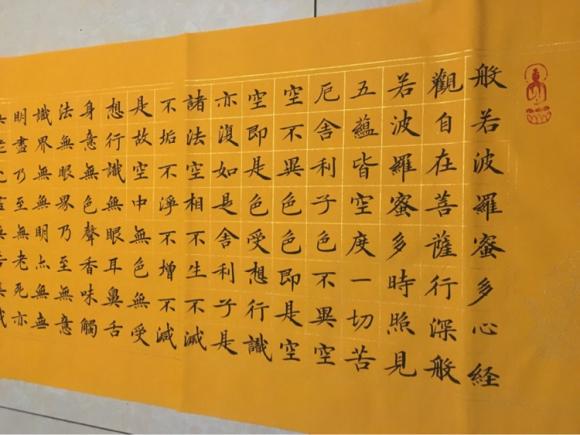 般若波羅蜜多心経
觀自在菩薩行深般
若波羅蜜多時照見
五蘊皆空度一切苦
厄舍利子色不異空
空不異色色即是空
空即是色受想行識
亦復如是舍利子是
諸法空相不生不滅
不垢不淨不增不減
是故空中無色無受
想行識無眼耳鼻舌
身意無色聲香味觸
法無眼界乃至無意
識界無無明亦無無
明盡乃至無老死亦